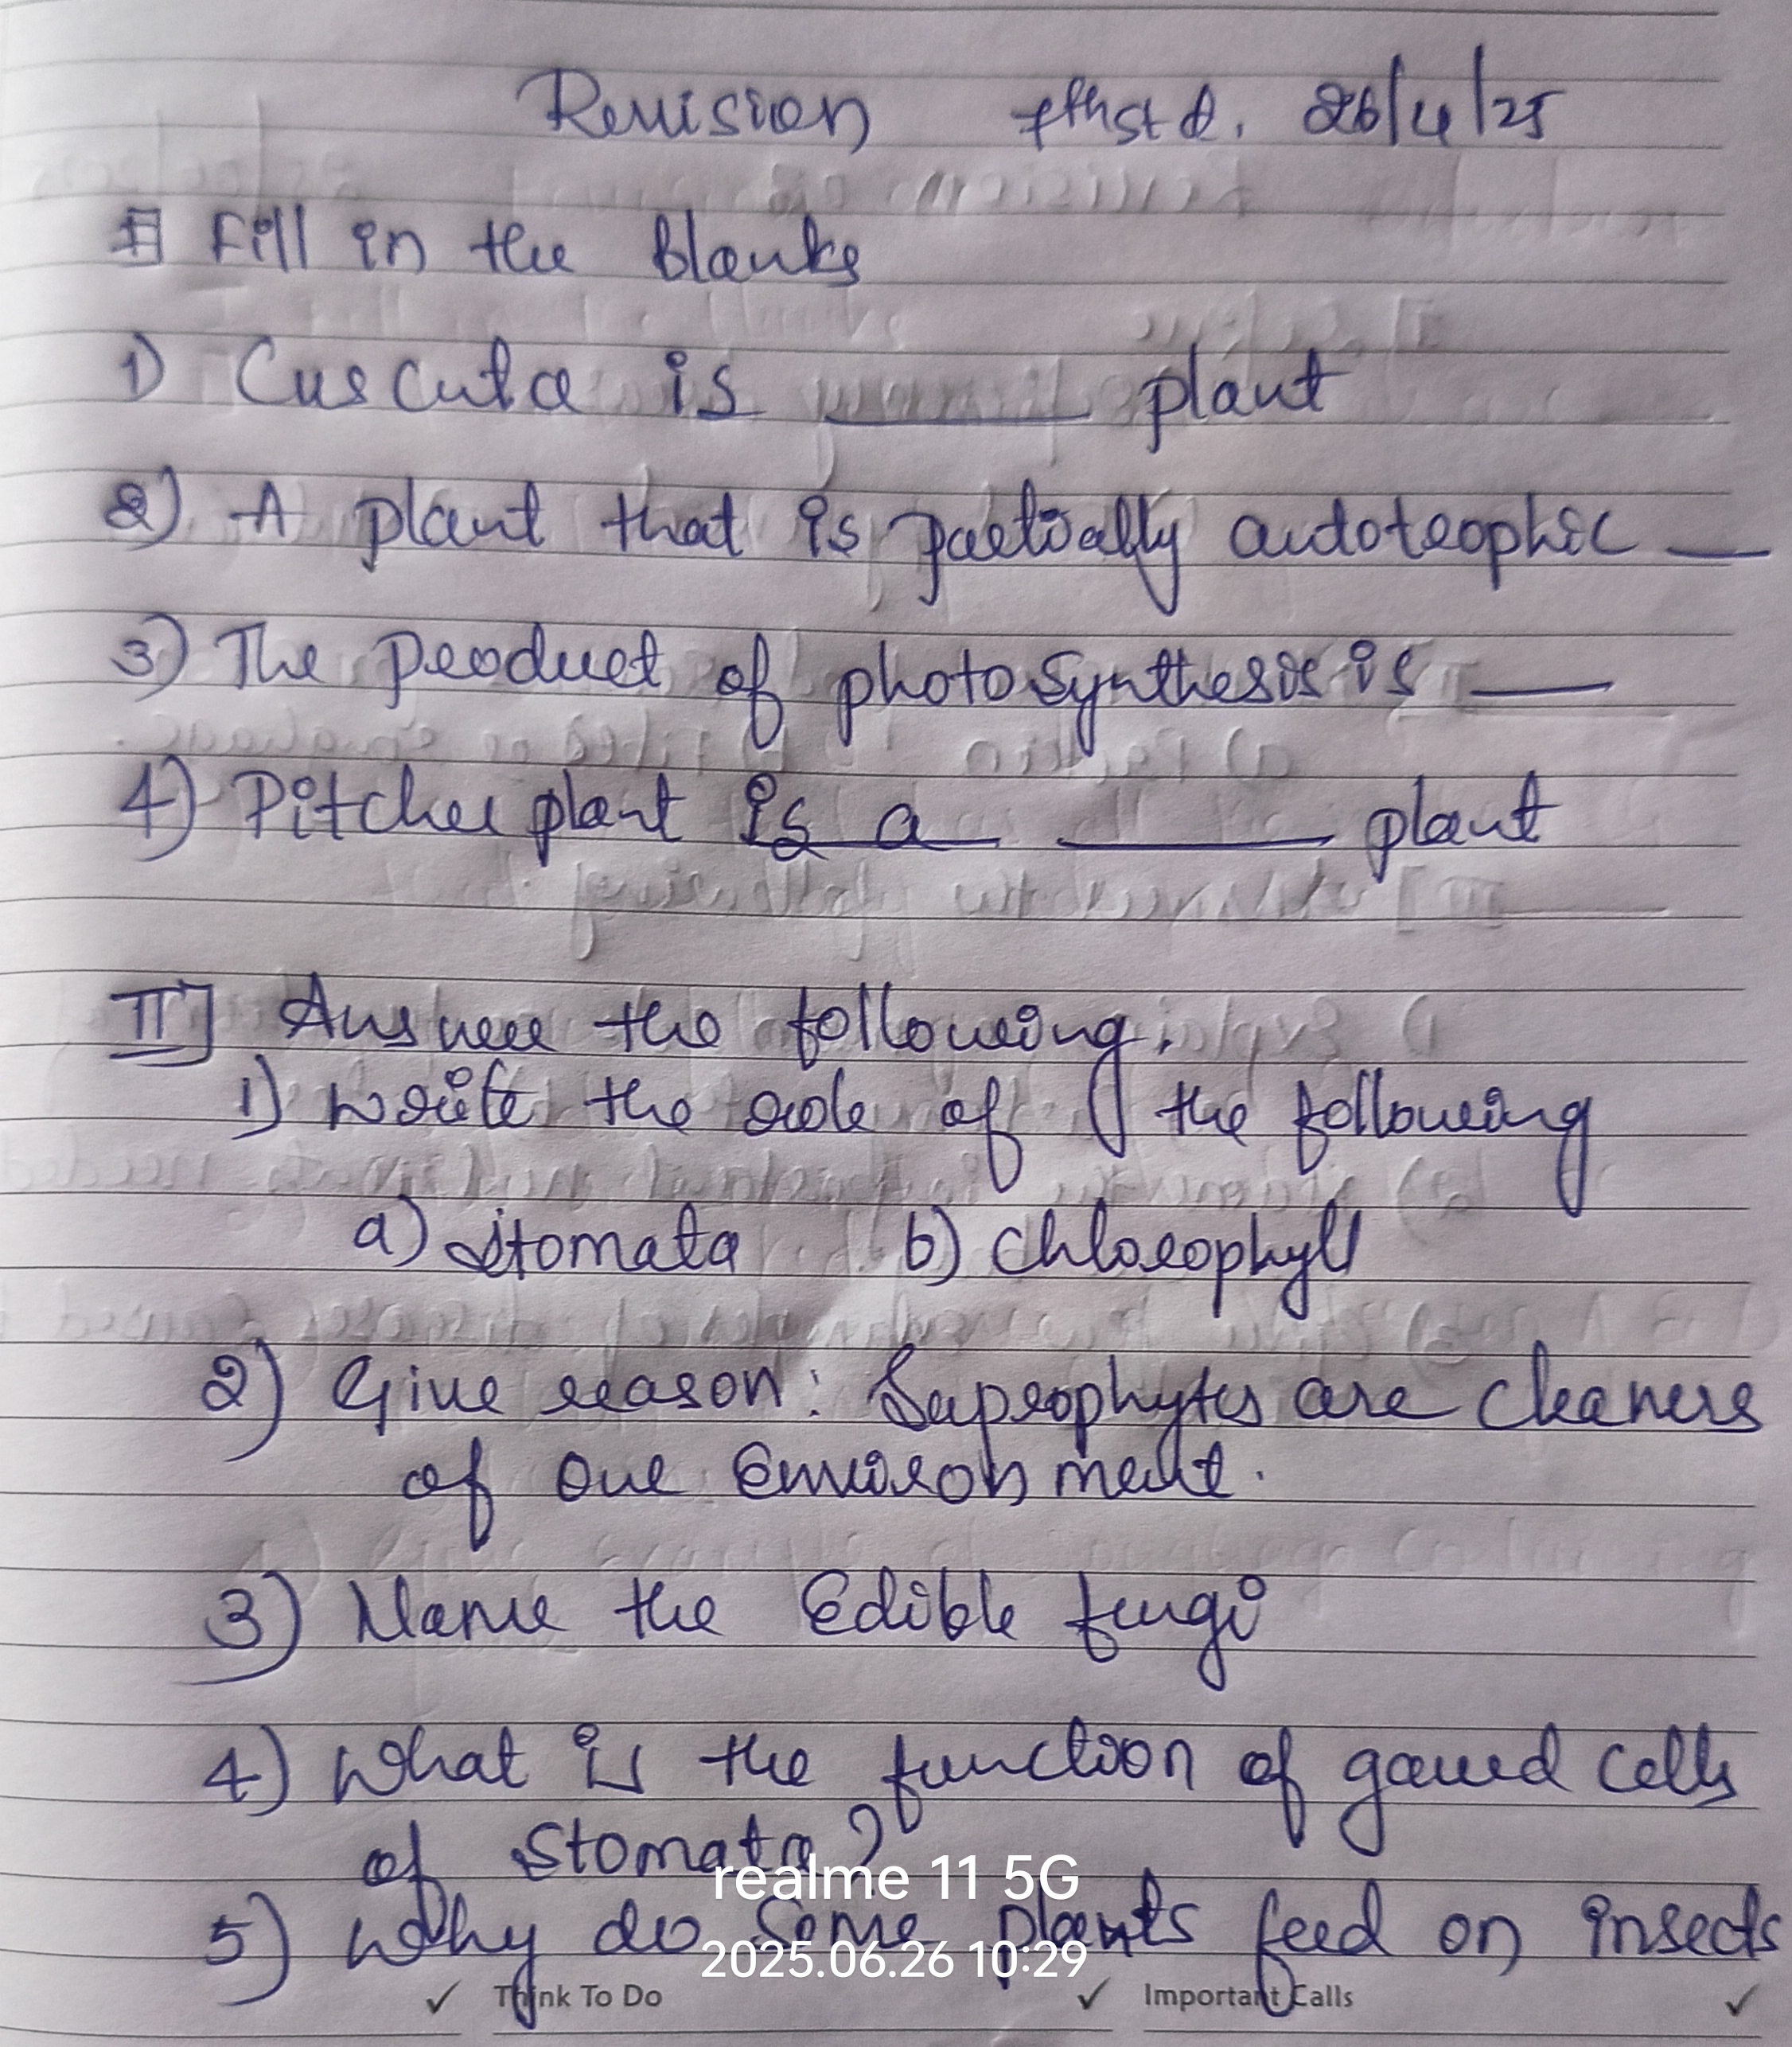 Revision 7th std. 26/4/25
I] Fill in the blanks
1) Cuscuta is ______ plant
2) A plant that is partially autotrophic __
3) The product of photosynthesis is ___
4) Pitcher plant is a ______ plant
II] Answer the following.
1) Write the role of the following
a) Stomata b) Chlorophyll
2) Give reason: Saprophytes are cleaners
of our Environment.
3) Name the Edible fungi
4) What is the function of gaurd cells
of Stomata?
realme 11 5G
5) Why do some plants feed on insects
2025.06.26 10:29
✓ Think To Do ✓ Important Calls ✓